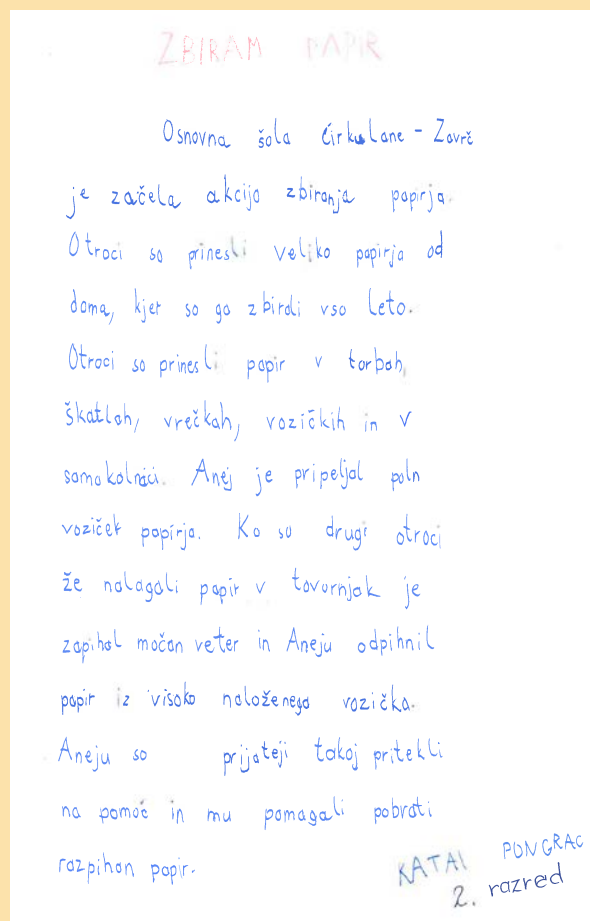 ZBIRAM PAPIR
Osnovna šola Cirkulane - Zavrč
je začela akcijo zbiranja papirja.
Otroci so prinesli veliko papirja od
doma, kjer so ga zbirali vso leto.
Otroci so prinesli papir v torbah,
škatlah, vrečkah, vozičkih in v
samokolnici. Anej je pripeljal poln
voziček papirja. Ko so drugi otroci
že nalagali papir v tovornjak je
zapihal močan veter in Aneju odpihnil
papir iz visoko naloženega vozička.
Aneju so prijateji takoj pritekli
na pomoč in mu pomagali pobrati
razpihan papir.
PONGRAC
2. razred